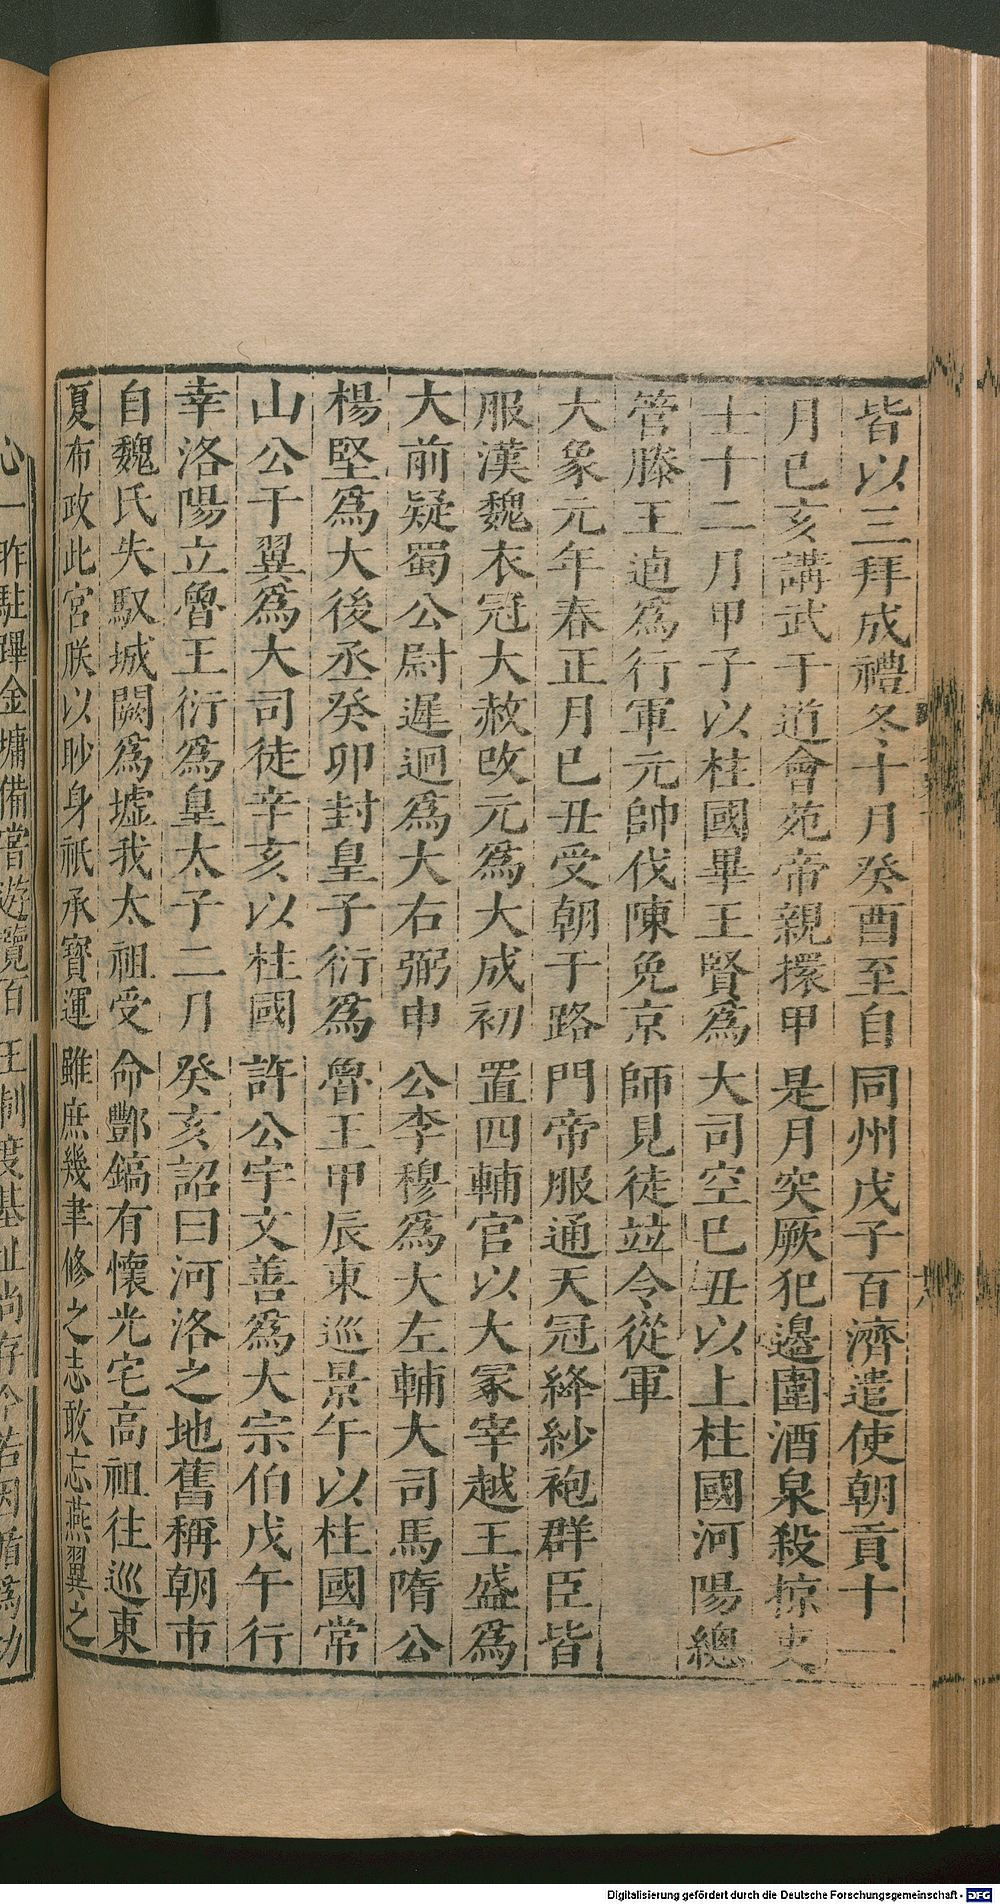 皆以三拜成禮冬十月癸酉至自同州戊子百濟遣使朝貢十一
月己亥講武于道會苑帝親擐甲是月突厥犯邊圍酒泉殺掠吏
士十二月甲子以柱國畢王賢爲大司空巳丑以上柱國河陽總
管滕王逌爲行軍元帥伐陳免京師見徒竝令從軍
大象元年春正月巳丑受朝于路門帝服通天冠絳紗袍群臣皆
服漢魏衣冠大赦改元爲大成初置四輔官以大冢宰越王盛爲
大前疑蜀公尉遲迥爲大右弼申公李穆爲大左輔大司馬隋公
楊堅爲大後丞癸卯封皇子衍爲魯王甲辰東巡景午以柱國常
山公于翼爲大司徒辛亥以柱國許公宇文善爲大宗伯戊午行
幸洛陽立魯王衍爲皇太子二月癸亥詔曰河洛之地舊稱朝市
自魏氏失馭城闕爲墟我太祖受命酆鎬有懷光宅高祖往巡東
夏布政此宮朕以眇身祇承寳運雖庶幾聿修之志敢忘燕翼之
心一昨駐蹕金墉備嘗遊覽百王制度基址尚存今若因循爲功
Digitalisierung gefördert durch die Deutsche Forschungsgemeinschaft - DFG